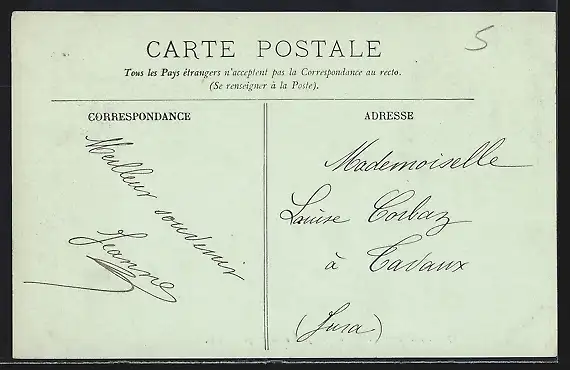 5
CARTE POSTALE
Tous les Pays étrangers n'acceptent pas la Correspondance au recto.
(Se renseigner à la Poste).
CORRESPONDANCE
Meilleur souvenir
Jeanne
ADRESSE
Mademoiselle
Louise Corbaz
à Tavaux
(Jura)